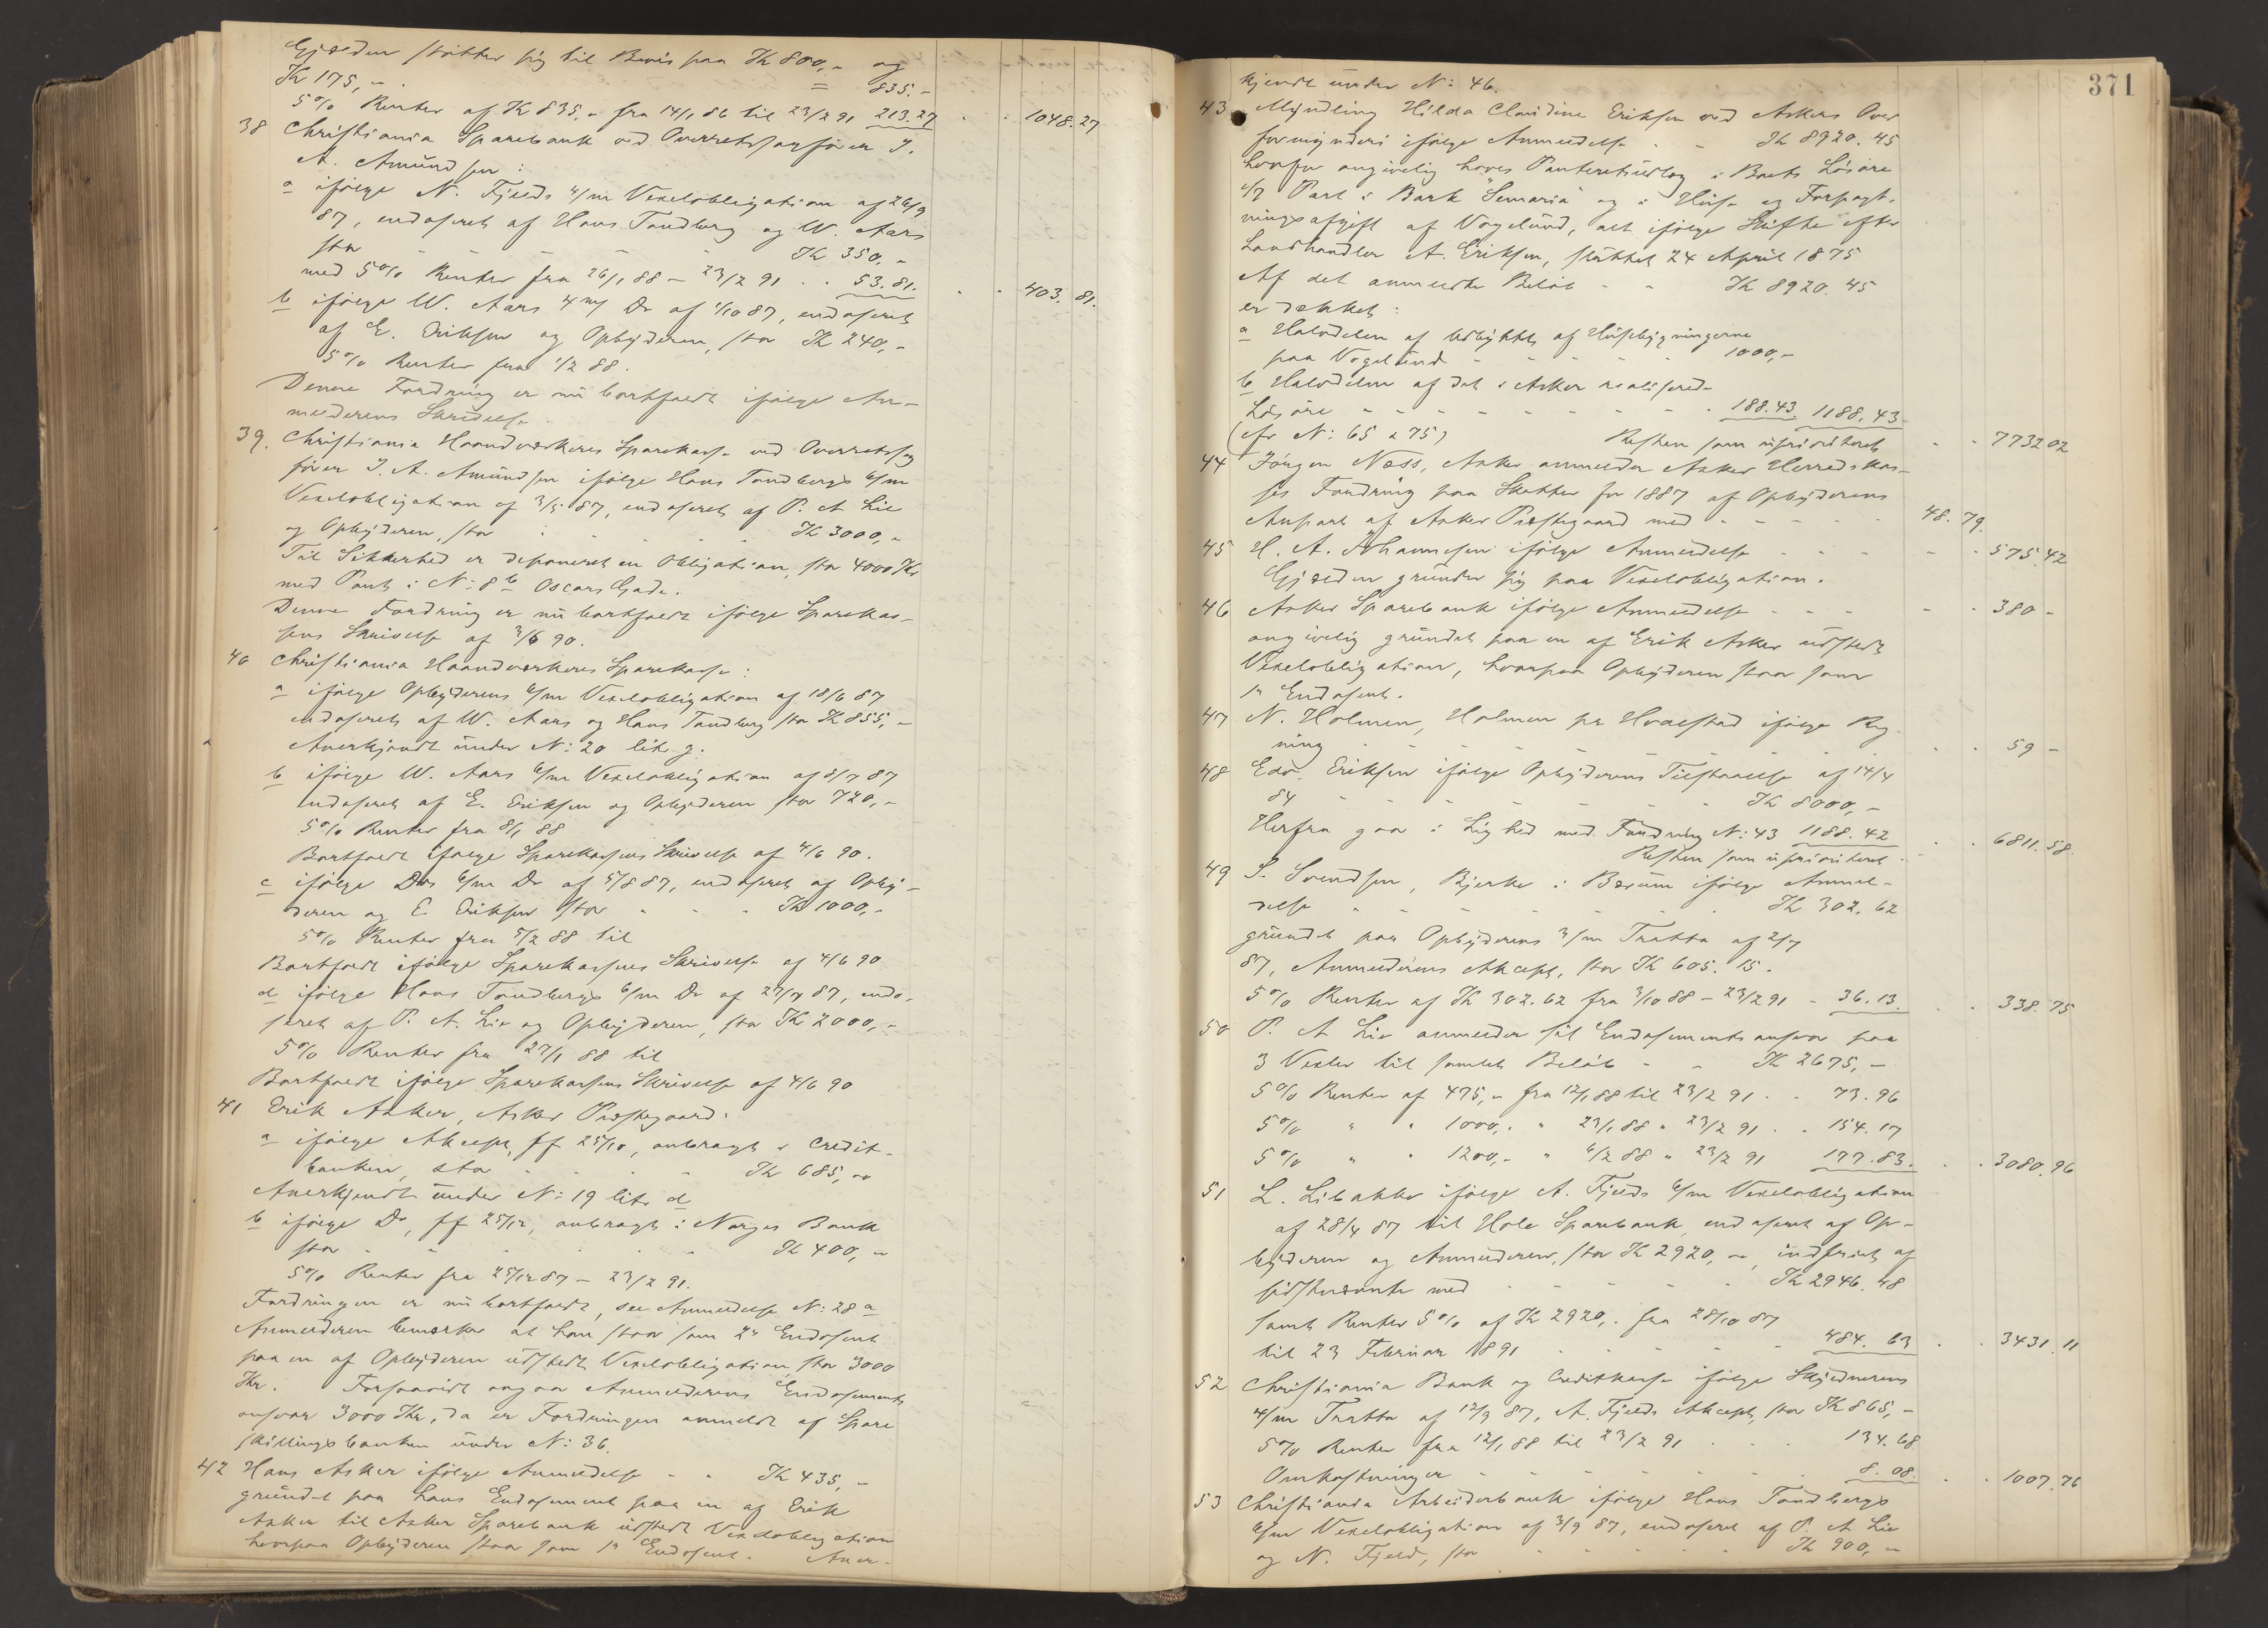 Gjælden støtter sig til Bevis paa Kr 800,- og
Kr 175,- = 835.-
5% Renter af Kr 835,- fra 14/1 86 til 23/2 91 213.27 1048.27
38 Christiania Sparebank ved Overretssagfører J.
A. Amundsen:
a ifølge N. Fjelds 4/m Vexelobligation af 26/9
87, endosseret af Hans Tandberg og W. Aars
stor Kr 350,-
med 5% Renter fra 26/1 88 - 23/2 91 53.81. 403.81.
b ifølge W. Aars 4/m Do af 1/10 87, endosseret
af E. Eriksen og Opbyderen, stor Kr 240,-
5% Renter fra 1/2 88.
Denne Fordring er nu bortfaldt ifølge An-
melderens Skrivelse.
39. Christiania Haandværkeres Sparekasse ved Overretssag
fører J. A. Amundsen ifølge Hans Tandbergs 6/m
Vexelobligation af 3/5 87, endosseret af P. A Lie
og Opbyderen, stor Kr 3000,-
Til Sikkerhed er deponeret en Obligation, stor 4000 Kr
med Pant i No 8b Oscars Gade.
Denne Fordring er nu bortfaldt ifølge Sparekas-
sens Skrivelse af 3/6 90.
40 Christiania Haandværkeres Sparekasse:
a ifølge Opbyderens 6/m Vexelobligation af 18/6 87
endosseret af W. Aars og Hans Tandberg stor Kr 855,-
Anerkjendt under No 20 litr g.
b ifølge W. Aars 6/m Vexelobligation af 8/7 87
endosseret af E. Eriksen og Opbyderen stor 720,-
5% Renter fra 8/1 88
Bortfaldt ifølge Sparekassens Skrivelse af 4/6 90.
c ifølge Ds 6/m Do af 5/8 87, endosseret af Opby-
deren og E. Eriksen stor Kr 1000,-
5% Renter fra 5/2 88 til
Bortfaldt ifølge Sparekassens Skrivelse af 4/6 90
d ifølge Hans Tandbergs 6/m Do af 27/7 87, endo-
seret af P. A. Lie og Opbyderen, stor Kr 2000,-
5% Renter fra 27/1 88 til
Bortfaldt ifølge Sparekassens Skrivelse af 4/6 90
41 Erik Asker, Asker Præstegaard:
a ifølge Akcept, ff 25/10, anbragt i Credit-
banken, stor Kr 685,-
Anerkjendt under No 19 litr d
b ifølge Do, ff 25/12, anbragt i Norges Bank
stor Kr 400,-
5% Renter fra 25/12 87 - 23/2 91.
Fordringen er nu bortfaldt, see Anmeldelse No 28 a
Anmelderen bemærker at han staar som 2n Endosent
paa en af Opbyderen udstedt Vexelobligation, stor 3000
Kr. Forsaavidt angaar Anmelderens Endosements
ansvar 3000 Kr, da er Fordringen anmeldt af Spare
skillingsbanken under No 36.
42 Hans Asker ifølge Anmeldelse Kr 435,-
grundet paa hans Endosement paa en af Erik
Asker til Asker Sparebank udstedt Vexelobligation
hvorpaa Opbyderen staar som 1n Endosent. Aner-
371
kjendt under No 46.
43 Myndling Hilda Claudine Eriksen ved Askers Over
formynderi ifølge Anmeldelse Kr 8920.45
hvorfor angivelig haves Panteretsudlæg i Boets Løsøre
1/7 Part i Bark "Semaria" og i Huse og Forpagt-
ningsafgift af Vogelund, alt ifølge Skifte efter
Landhandler A. Eriksen, sluttet 24 April 1875
Af det anmeldte Beløb Kr 8920.45
er dækket:
a Halvdelen af Udbyttet af Husebygningerne
paa Vogelund 1000,-
b Halvdelen af det i Asker realiserede
Løsøre 188.43 1188.43
(cfr No 65 & 75) Resten som uprioriteret 7732 02
44 Jörgen Næss, Asker anmelder Asker Herredskas-
ses Fordring paa Skatter for 1887 af Opbyderens
Anpart af Asker Præstegaard med 48.79.
45 H. A. Johannesen ifølge Anmeldelse 575.42
Gjælden grunder sig paa Vexelobligation.
46 Asker Sparebank ifølge Anmeldelse 380 -
angivelig grundet paa en af Erik Asker udstedt
Vexelobligation, hvorpaa Opbyderen staar som
1n Endosent.
47 N. Holmen, Holmen pr Hvalstad ifølge Reg
ning 59 -
48 Edv. Eriksen ifølge Opbyderens Tilstaaelse af 14/4
84 Kr 8000,-
Herfra gaar i Lighed med Fordring No 43 1188.42
Resten som uprioriteret 6811.58.
49 S. Svendsen, Bjerke i Bærum ifølge Anmel-
delse Kr 302.62
grundet paa Opbyderens 3/m Tratta af 2/7
87, Anmelderens Akcept, stor Kr 605.15.
5% Renter af Kr 302.62 fra 3/10 88 - 23/2 91 - 36.13. 338.75
50 P. A Lie anmelder sit Endosementsansvar paa
3 Vexler til samlet Beløb Kr 2675,-
5% Renter af 475,- fra 12/1 88 til 23/2 91 73.96
5% " " 1000,- " 23/1 88 " 23/2 91 154.17
5% " " 1200,- " 6/2 88 " 23/2 91 177.83. 3080.96
51 L. Libakke ifølge A. Fjelds 6/m Vexelobligation
af 28/4 87 til Hole Sparebank endosseret af Op-
byderen og Anmelderen, stor Kr 2920,-, indfriet af
sidstnævnte med Kr 2946.48
samt Renter 5% af Kr 2920,- fra 28/10 87
til 23 Februar 1891 484.63 3431.11
52 Christiania Bank og Creditkasse ifølge Skyldnerens
4/m Tratta af 12/9 87, A. Fjelds Akcept, stor Kr 865,-
5% Renter fra 12/1 88 til 23/2 91 134.68
Omkostninger 8.08. 1007.76
53 Christiania Arbeiderbank ifølge Hans Tandbergs
6/m Vexelobligation af 3/9 87, endosseret af P. A Lie
og N. Fjeld, stor Kr 900,-